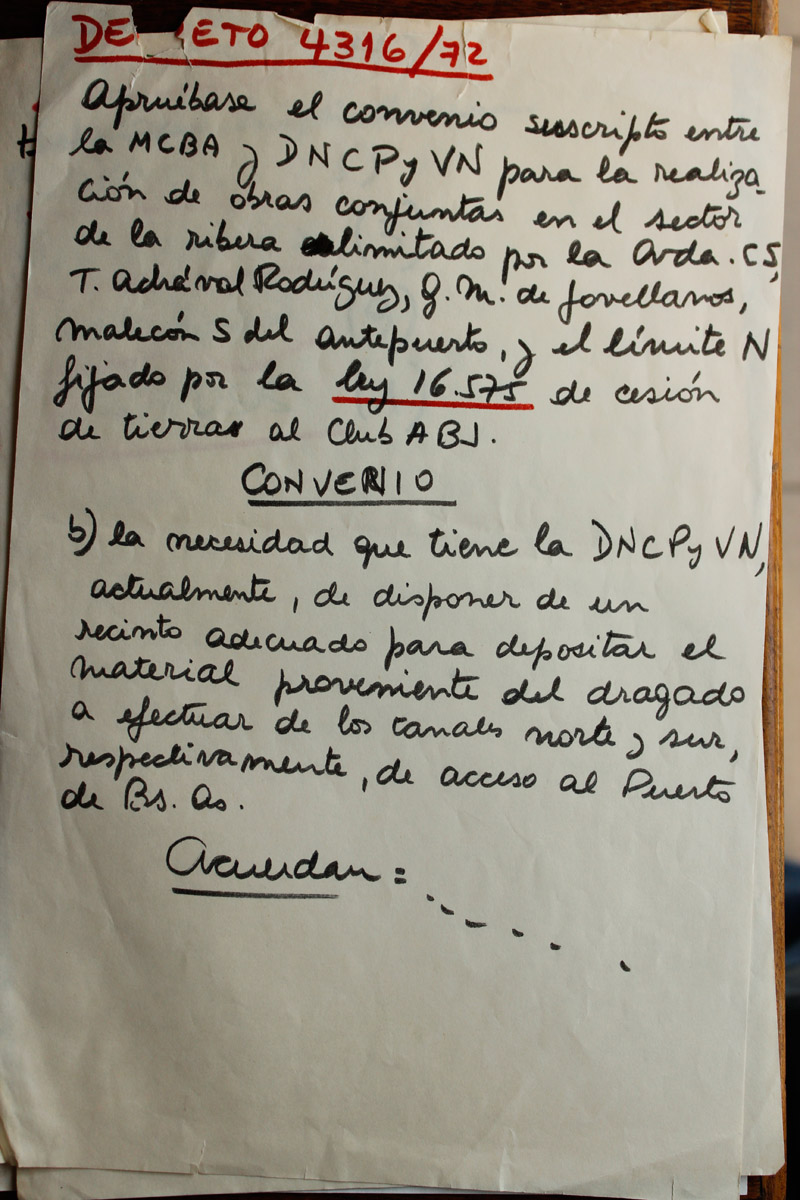 DE ETO 4316/72
Apruébase el convenio suscripto entre
la MCBA y DNCPyVN para la realiza-
ción de obras conjuntas en el sector
de la ribera delimitado por la Avda. CS,
T. Achával Rodríguez, G. M. de Jovellanos,
malecón S del antepuerto, y el límite N
fijado por la ley 16.575 de cesión
de tierras al Club ABJ.
CONVENIO
b) la necesidad que tiene la DNCPyVN,
actualmente, de disponer de un
recinto adecuado para depositar el
material proveniente del dragado
a efectuar de los canales norte y sur,
respectivamente, de acceso al Puerto
de Bs. As.
Acuerdan = . . . . . .